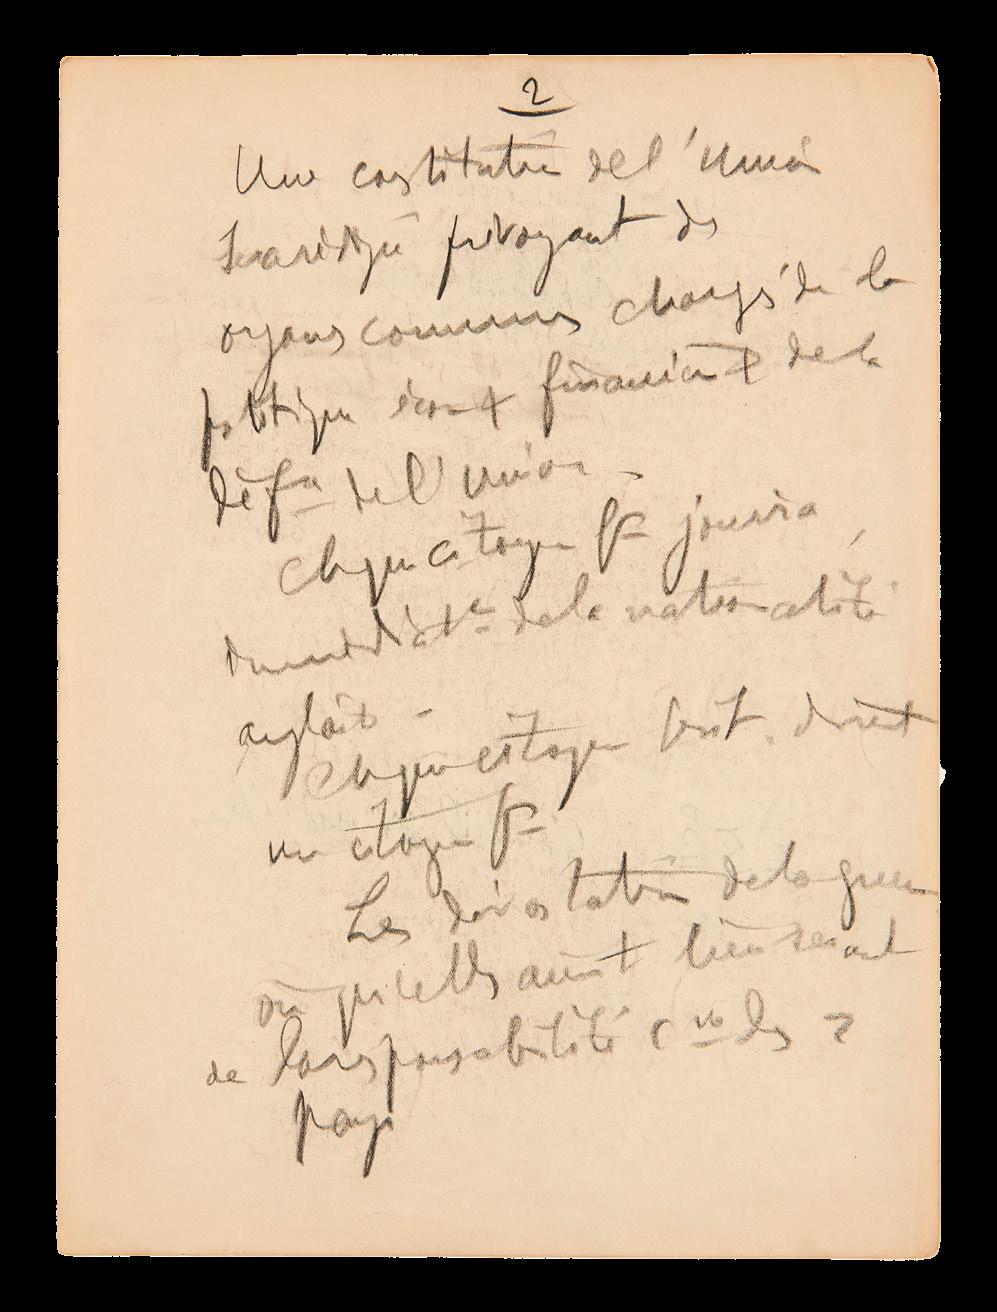 2
Une constitution de l'Union
sera rédigée prévoyant des
organes communs chargés de la
politique écon et financière et de la
défse de l'Union.
Chaque citoyen fs jouira
immédiatt de la nationalité
anglaise -
Chaque citoyen brit. devient
un citoyen fs
Les dévastations de la guerre
où qu'elles aient lieu seront
de la responsabilité cne des 2
pays